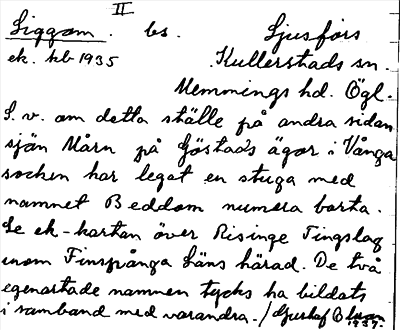 II
Siggom. bs. Ljusfors
ek. kb 1935 Kullerstads sn.
Memmings hd. Ögl.
S. v. om detta ställe på andra sidan
sjön Mårn på Göstads ägor i Vånga
socken har legat en stuga med
namnet Beddom numera borta.
Se ek-kartan över Risinge Tingslag
inom Finspånga Läns härad. De två
egenartade namnen tycks ha bildats
i samband med varandra. / Gustaf
1937.